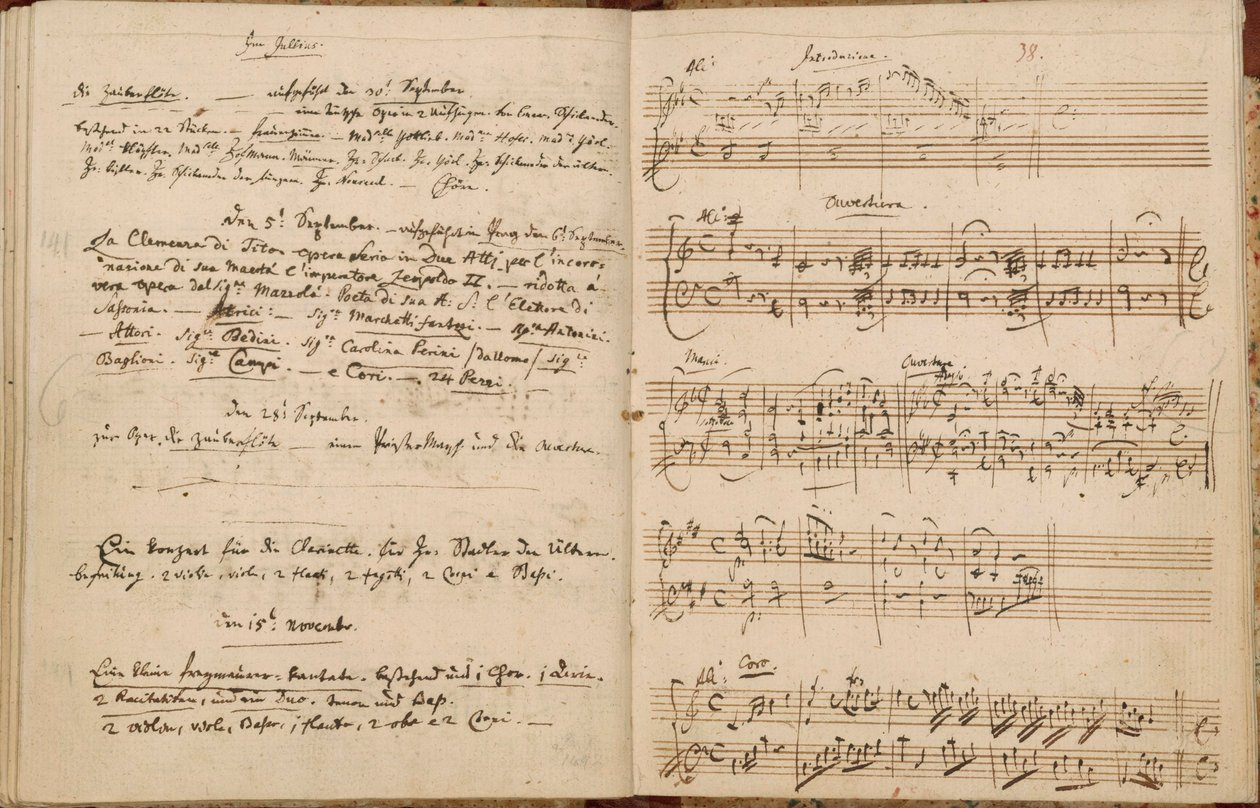 Im Jullius.
die Zauberflöte. — aufgeführt den 30t September.
eine teutsche Oper in 2 Aufzügen. von Eman. Schikaneder.
bestehend in 22 Stücken. — Frauenzimmer. — Mad:selle Gottlieb. Mad:me Hofer. Mad:me Görl.
Mad:me Klöpfler. Mad:selle Hofmann. Männer. Hr: Schack. Hr: Görl. Hr: Schikaneder der ältere.
Hr: Kistler. Hr: Schikaneder der Jüngere. Hr: Nouseul. — Chöre.
den 5t September. — aufgeführt in Prag den 6t September.
La Clemenza di Tito. opera Seria in Due Atti. per l'incoro-
nazione di sua Maestà l'imperatore Leopoldo II. — ridotta a
vera opera dal Sigre Mazzolà. Poeta di sua A: S: l'Elettore di
Sassonia. — Attrici: — Sigra Marchetti fantozi. — Sigra Antonini.
— Attori. Sigre Bedini. Sigra Carolina Perini / da Uomo / Sigre
Baglioni. Sigre Campi. — e Cori. — 24 Pezzi. —
den 28t September.
zur Oper. die Zauberflöte — einen Priester Marsch und die Ouverture. —
Ein konzert für die Clarinette. für Hr: Stadler den Ältern.
begleitung. 2 violini, viola, 2 flauti, 2 fagotti, 2 Corni e Baßi.
den 15t Novembr.
Eine kleine freymaurer-kantate. bestehend aus 1 Chor. 1 Arie.
2 Recitativen, und ein Duo. tenor und Baß.
2 violini, viola, Baßo, 1 flauto, 2 oboe e 2 Corni. —
Introduzione.
38.
All:
Ouvertura.
All:
Marcia.
Ouverture
Adagio
Coro.
All: